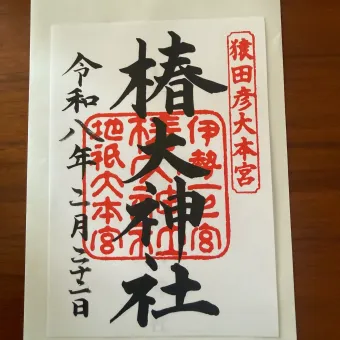 猿田彦大本宮
椿大神社
伊勢一之宮
椿大神社
地祇大本宮
令和八年二月二十二日